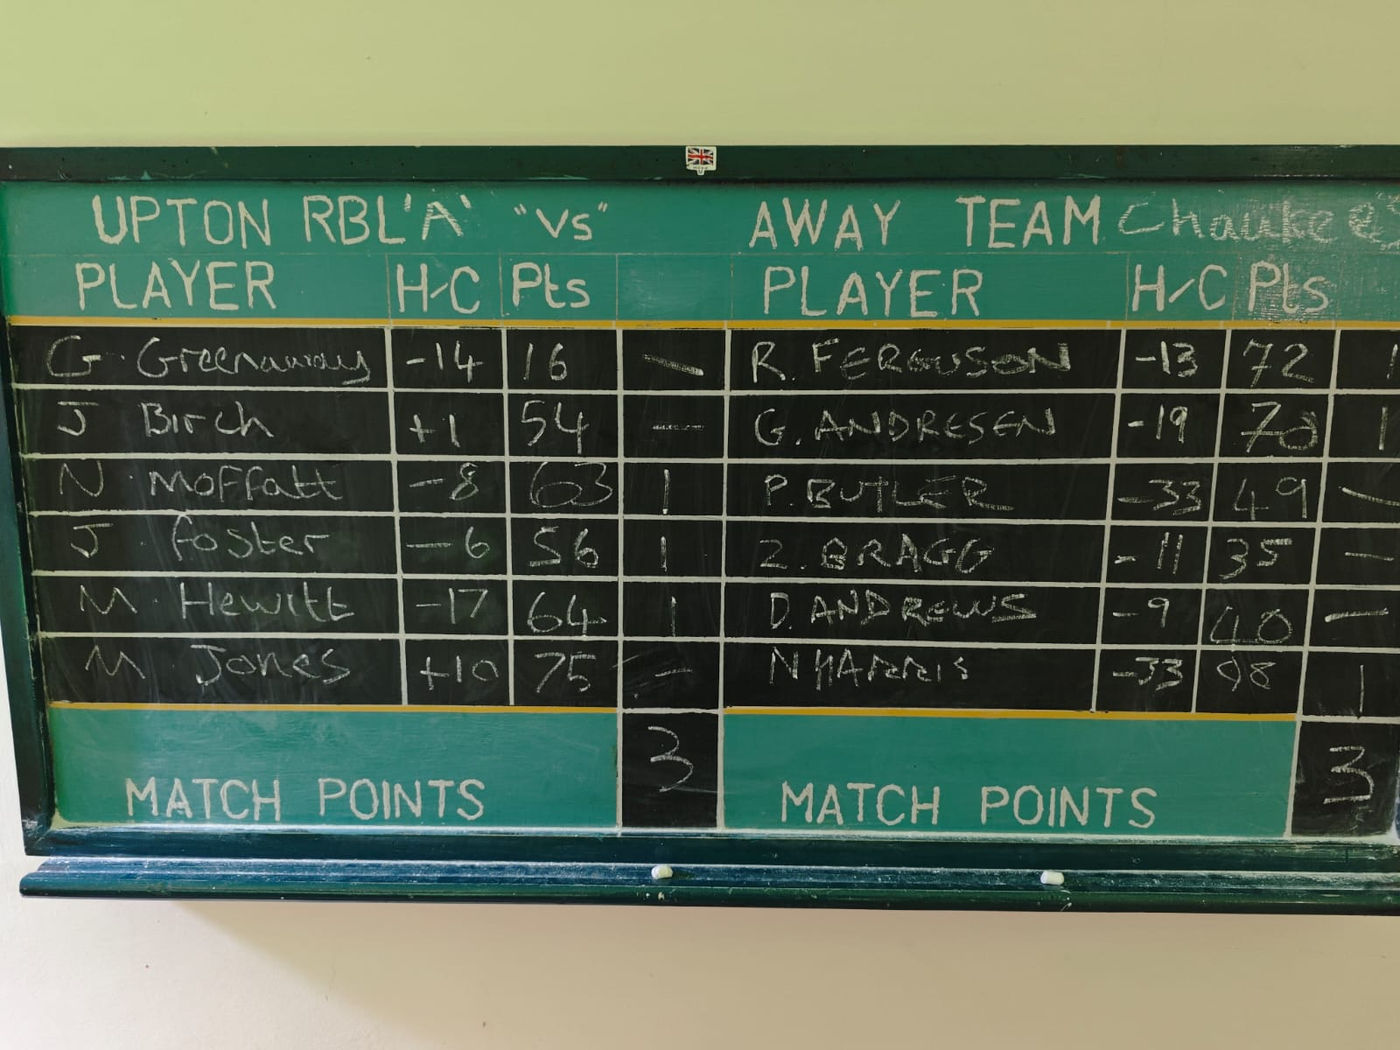 UPTON RBL 'A' "Vs" AWAY TEAM Chaukee's
PLAYER H/C Pts PLAYER H/C Pts
G Greenaway -14 16 — R. FERGUSON -13 72 1
J Birch +1 54 — G. ANDRESEN -19 70 1
N Moffatt -8 63 1 P. BUTLER -33 49 —
J foster -6 56 1 Z. BRAGG -11 35 —
M Hewitt -17 64 1 D. ANDREWS -9 40 —
M Jones +10 75 — N HARRIS -33 98 1
MATCH POINTS 3 MATCH POINTS 3